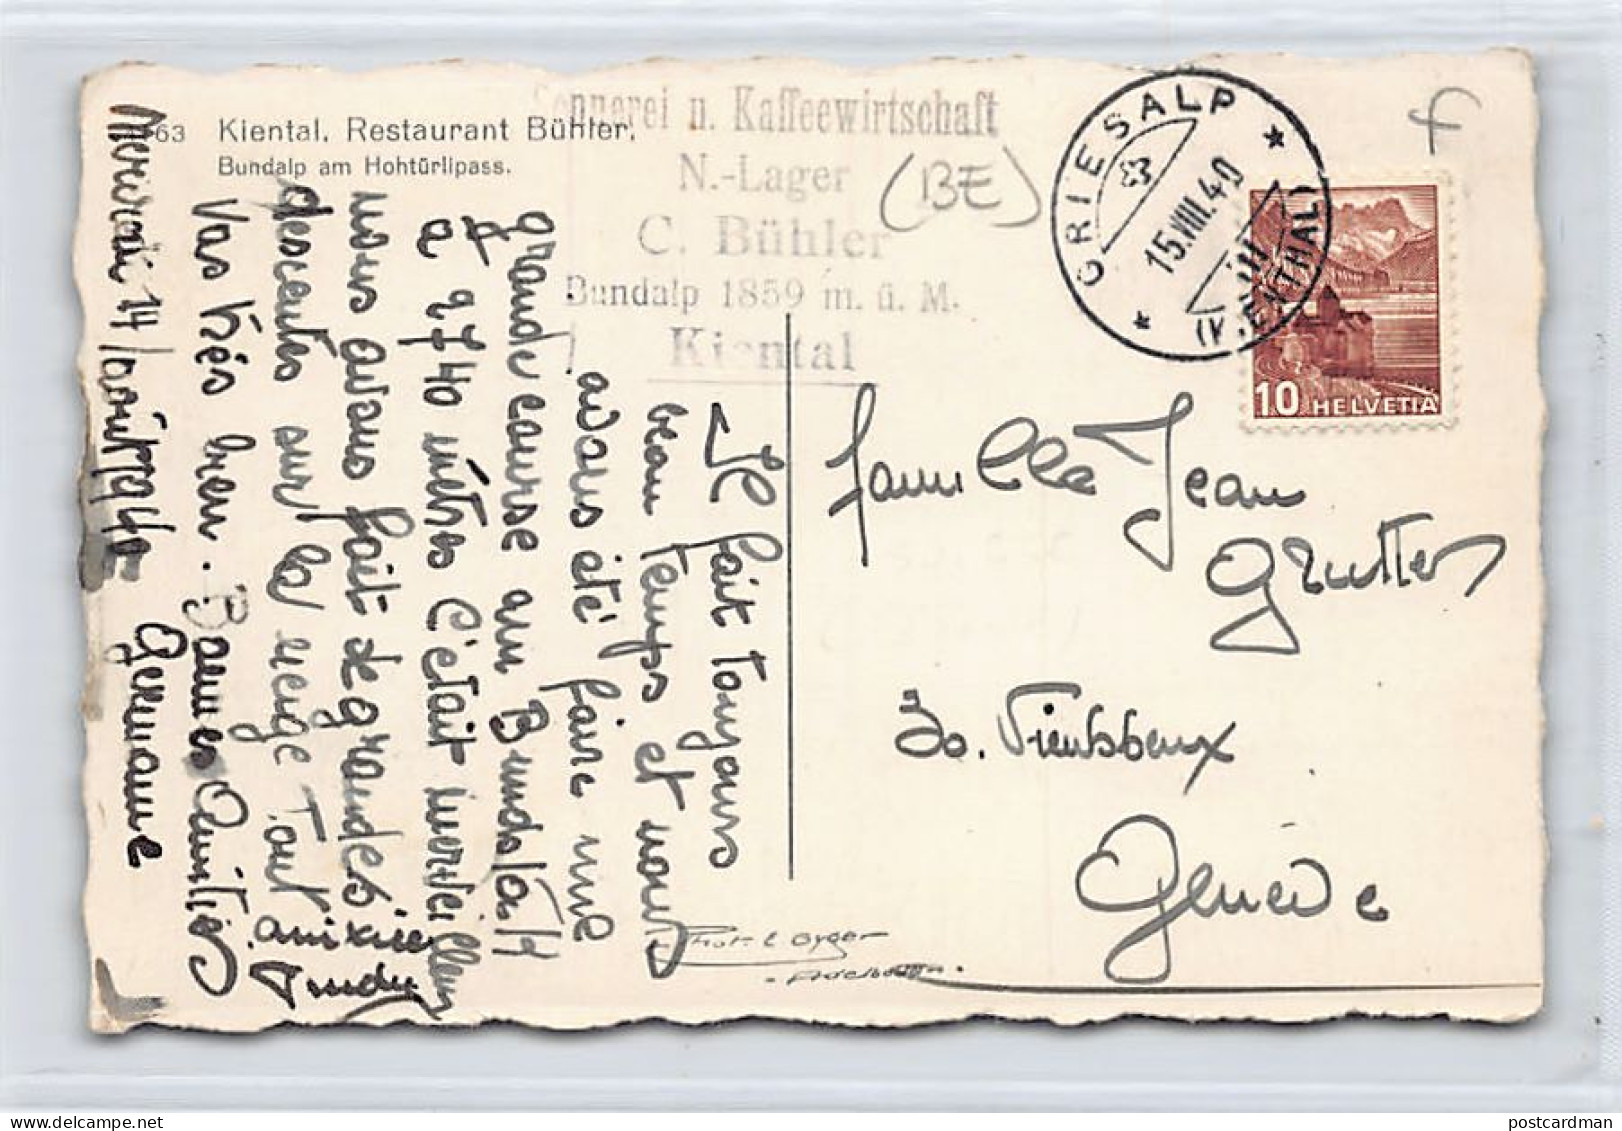 63 Kiental. Restaurant Bühler,
Bundalp am Hohtürlipass.
Sennerei u. Kaffeewirtschaft
N.-Lager
C. Bühler
Bundalp 1859 m. ü. M.
Kiental
(BE)
GRIESALP
15.VIII.40
(KIENTHAL)
10 HELVETIA
famille Jean
Grutter
30. Vieusseux
Genève
Il fait toujours
beau temps et nous
avons été faire une
grande course au Bundalp
à 2740 mètres c'était merveilleux
nous avons fait de grandes
descentes sur la neige Tout
Vas très bien. Bonnes Amitiés
Mercredi 14/août 1940
Germaine
Phot. E. Gyger
Adelboden.
postcardman